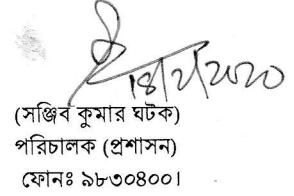 ১৪/২/২০২০
(সঞ্জিব কুমার ঘটক)
পরিচালক (প্রশাসন)
ফোনঃ ৯৮৩০৪০০।